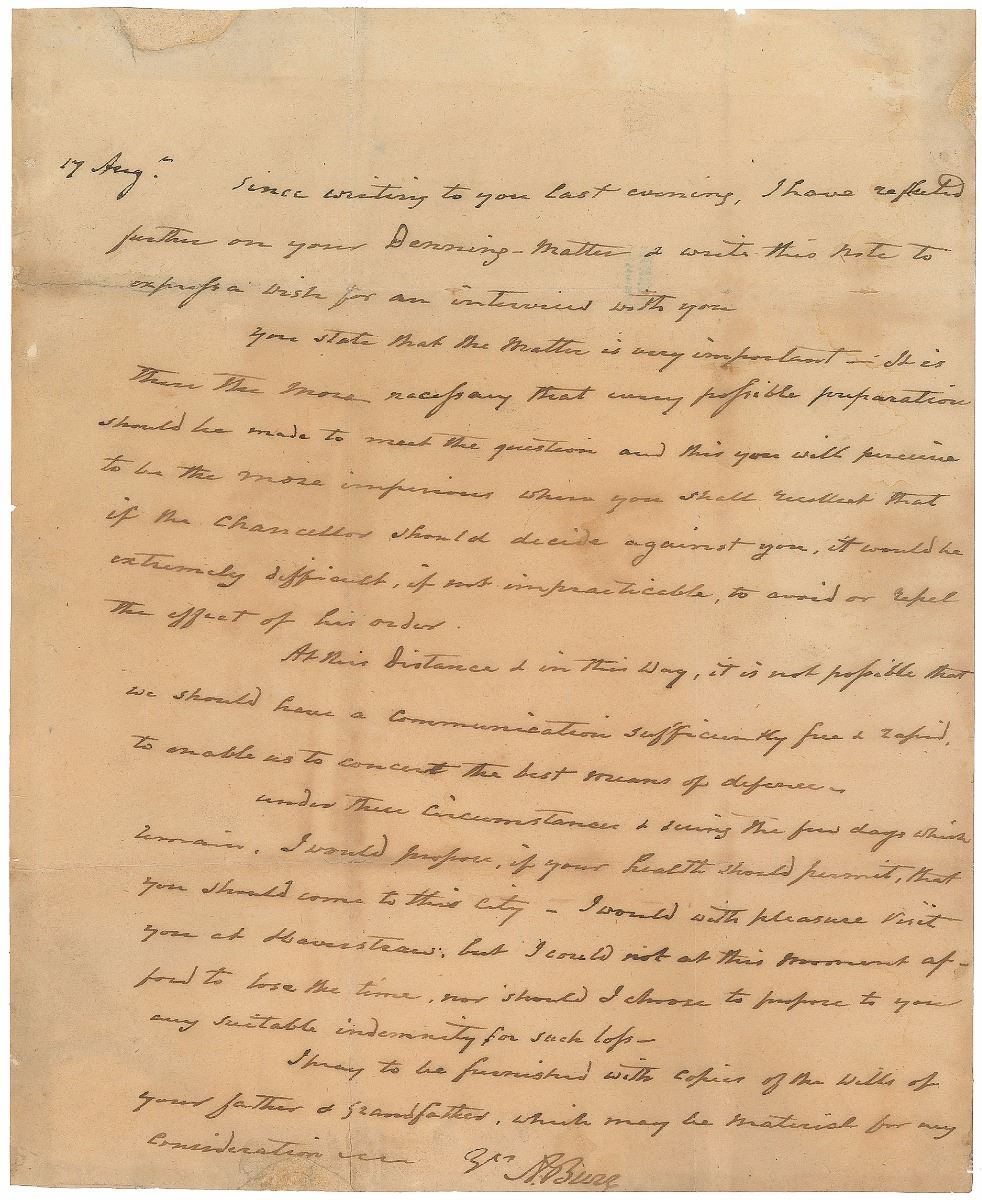 17 Augt.
Since writing to you last evening, I have reflected
further on your Denning-Matter & write this Note to
express a wish for an interview with you
You state that the Matter is very important — It is
then the more necessary that every possible preparation
should be made to meet the question and this you will perceive
to be the more imperious when you shall recollect that
if the Chancellor should decide against you, it would be
extremely difficult, if not impracticable, to avoid or repel
the effect of his order.
At this Distance & in this Way, it is not possible that
we should have a communication sufficiently free & rapid,
to enable us to concert the best means of defence —
under these Circumstances & seeing the few days which
remain, I would propose, if your health should permit, that
you should come to this City — I would with pleasure Visit
you at Haverstraw; but I could not at this moment af-
ford to lose the time, nor should I choose to propose to you
any suitable indemnity for such loss —
I pray to be furnished with copies of the Wills of
your father & Grandfather, which may be Material for my
Consideration
Yrs A. Burr